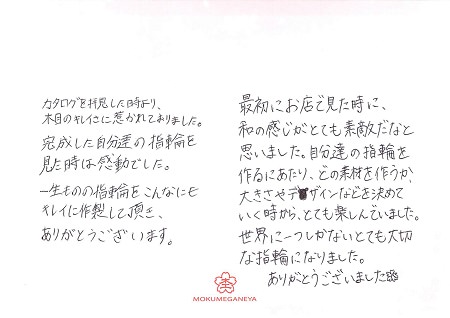 カタログを拝見した時より、
木目のキレイさに惹かれておりました。
完成した自分達の指輪を
見た時は感動でした。
一生ものの指輪をこんなにも
キレイに作製して頂き、
ありがとうございます。
最初にお店で見た時に、
和の感じがとても素敵だなと
思いました。自分達の指輪を
作るにあたり、どの素材を作うか、
大きさやデザインなどを決めて
いく時から、とても楽しんでいました。
世界に一つしかないとても大切
な指輪になりました。
ありがとうございました
MOKUMEGANEYA